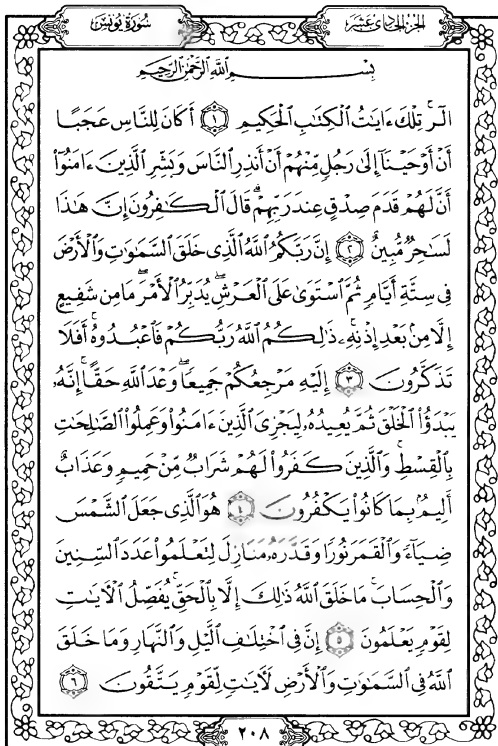 سُورَةُ يُونُسَ
الجزء الحادي عشر
بِسْمِ ٱللَّهِ ٱلرَّحْمَٰنِ ٱلرَّحِيمِ
الٓر ۚ تِلْكَ ءَايَٰتُ ٱلْكِتَٰبِ ٱلْحَكِيمِ ١ أَكَانَ لِلنَّاسِ عَجَبًا
أَنْ أَوْحَيْنَآ إِلَىٰ رَجُلٍ مِّنْهُمْ أَنْ أَنذِرِ ٱلنَّاسَ وَبَشِّرِ ٱلَّذِينَ ءَامَنُوٓا۟
أَنَّ لَهُمْ قَدَمَ صِدْقٍ عِندَ رَبِّهِمْ ۗ قَالَ ٱلْكَٰفِرُونَ إِنَّ هَٰذَا
لَسَٰحِرٌ مُّبِينٌ ٢ إِنَّ رَبَّكُمُ ٱللَّهُ ٱلَّذِى خَلَقَ ٱلسَّمَٰوَٰتِ وَٱلْأَرْضَ
فِى سِتَّةِ أَيَّامٍ ثُمَّ ٱسْتَوَىٰ عَلَى ٱلْعَرْشِ ۖ يُدَبِّرُ ٱلْأَمْرَ ۖ مَا مِن شَفِيعٍ
إِلَّا مِنۢ بَعْدِ إِذْنِهِۦ ۚ ذَٰلِكُمُ ٱللَّهُ رَبُّكُمْ فَٱعْبُدُوهُ ۚ أَفَلَا
تَذَكَّرُونَ ٣ إِلَيْهِ مَرْجِعُكُمْ جَمِيعًا ۖ وَعْدَ ٱللَّهِ حَقًّا ۚ إِنَّهُۥ
يَبْدَؤُا۟ ٱلْخَلْقَ ثُمَّ يُعِيدُهُۥ لِيَجْزِىَ ٱلَّذِينَ ءَامَنُوا۟ وَعَمِلُوا۟ ٱلصَّٰلِحَٰتِ
بِٱلْقِسْطِ ۚ وَٱلَّذِينَ كَفَرُوا۟ لَهُمْ شَرَابٌ مِّنْ حَمِيمٍ وَعَذَابٌ
أَلِيمٌۢ بِمَا كَانُوا۟ يَكْفُرُونَ ٤ هُوَ ٱلَّذِى جَعَلَ ٱلشَّمْسَ
ضِيَآءً وَٱلْقَمَرَ نُورًا وَقَدَّرَهُۥ مَنَازِلَ لِتَعْلَمُوا۟ عَدَدَ ٱلسِّنِينَ
وَٱلْحِسَابَ ۚ مَا خَلَقَ ٱللَّهُ ذَٰلِكَ إِلَّا بِٱلْحَقِّ ۚ يُفَصِّلُ ٱلْءَايَٰتِ
لِقَوْمٍ يَعْلَمُونَ ٥ إِنَّ فِى ٱخْتِلَٰفِ ٱلَّيْلِ وَٱلنَّهَارِ وَمَا خَلَقَ
ٱللَّهُ فِى ٱلسَّمَٰوَٰتِ وَٱلْأَرْضِ لَءَايَٰتٍ لِّقَوْمٍ يَتَّقُونَ ٦
٢٠٨